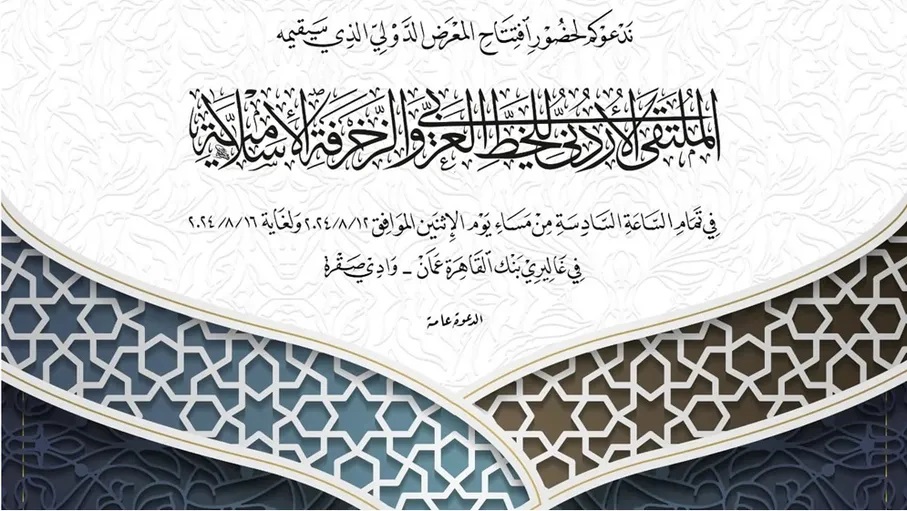 نَدعُوكم لحضُورِ اَفتِتَاحِ المَعْرَضِ الدَّوْليِّ الذِي سَيُقيمُه
المُلتَقى الأُردُنيُّ للخَطِّ العَرَبيِّ وَالزَّخرَفَةِ الإسْلَاميَّة
فِي تَمَامِ السَّاعَةِ السَّادِسَةِ مِنْ مَسَاءِ يَوْمِ الإِثْنَينِ المُوَافِق ٢٠٢٤/٨/١٢ وَلغَاية ٢٠٢٤/٨/١٦
فِي غَاليرِي بَنْك اَلقَاهِرَة عَمَّانْ - وَادِي صَقْرَة
الدعوة عامة